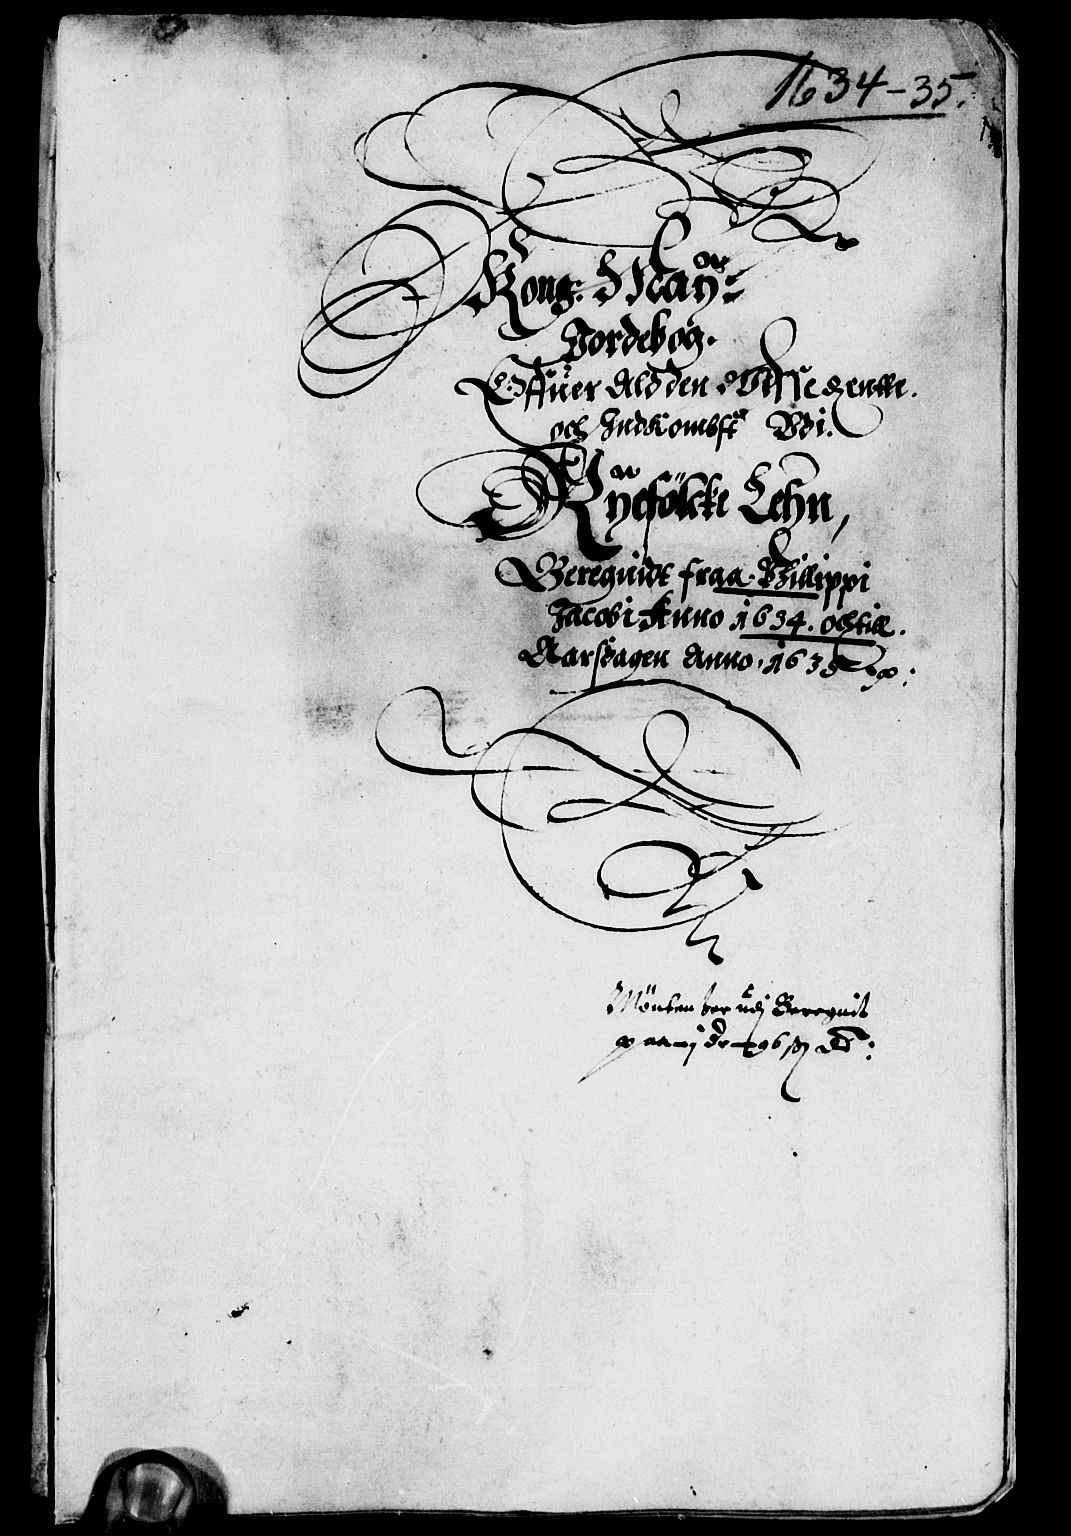 1634-35.
Kong: May:tz
Jordebog.
Offuer Ald den Visse Rente.
och Indkombst Vdi.
Rÿefölcke Lehn,
Beregnidt fraa Phillippi
Jacobi Anno 1634. och till.
Aarsdagen Anno 1635
Mönten her udj Beregnit